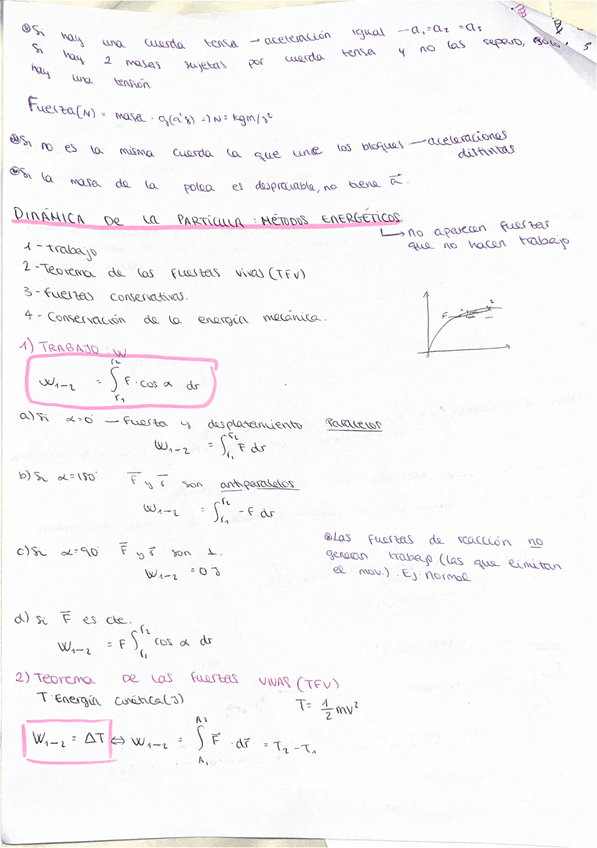 ⊛Si hay una cuerda tensa → aceleración igual — a₁=a₂ =a₃
Si hay 2 masas sujetas por cuerda tensa y no las separo, solo
hay una tensión.
Fuerza(N) = masa · g(9'8) => N = kgm/s²
⊛Si no es la misma cuerda la que une los bloques — aceleraciones
distintas
⊛Si la masa de la polea es despreciable, no tiene a⃗.
DINÁMICA DE LA PARTÍCULA: MÉTODOS ENERGÉTICOS
↳ no aparecen fuerzas
que no hacen trabajo
1 - Trabajo
2 - Teorema de las fuerzas vivas (TFV)
3 - Fuerzas conservativas.
4 - Conservación de la energía mecánica.
F 2
1) TRABAJO: W
W₁₋₂ = ∫r₁r₂ F · cos α dr
a) Si α=0° — Fuerza y desplazamiento paralelos
W₁₋₂ = ∫r₁r₂ F dr
b) Si α=180° F⃗ y r⃗ son antiparalelos
W₁₋₂ = ∫r₁r₂ -F dr
c) Si α=90° F⃗ y r⃗ son ⊥.
W₁₋₂ = 0 J
⊛Las fuerzas de reacción no
generan trabajo (las que limitan
el mov.). Ej: normal
d) Si F⃗ es cte.
W₁₋₂ = F ∫r₁r₂ cos α dr
2) TEOREMA DE LAS FUERZAS VIVAS (TFV)
T: Energía cinética (J) T = 1/2 mv²
W₁₋₂ = ΔT ⇔ W₁₋₂ = ∫A₁A₂ F⃗ · dr⃗ = T₂ - T₁